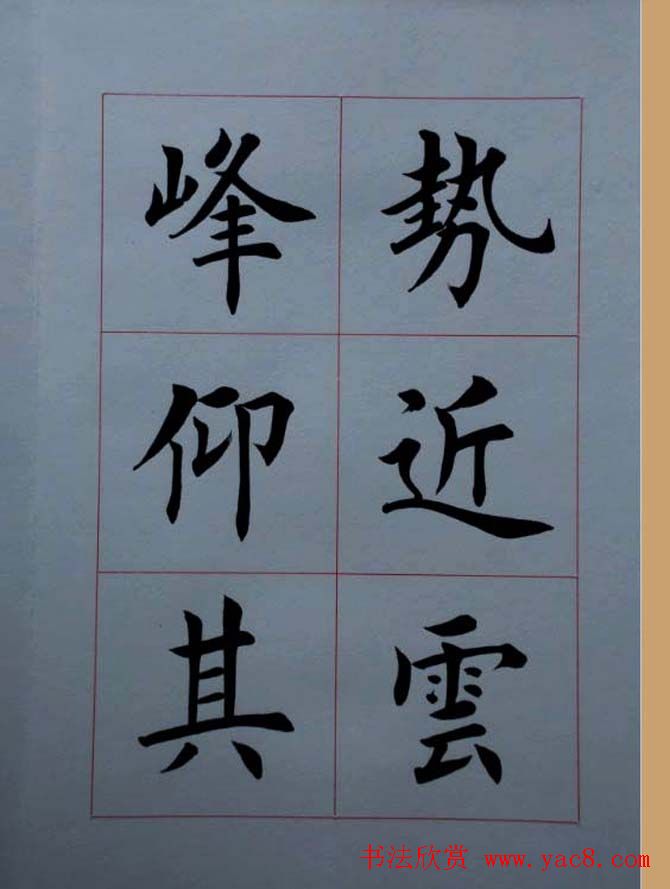 势近雲
峰仰其
书法欣赏 www.yac8.com